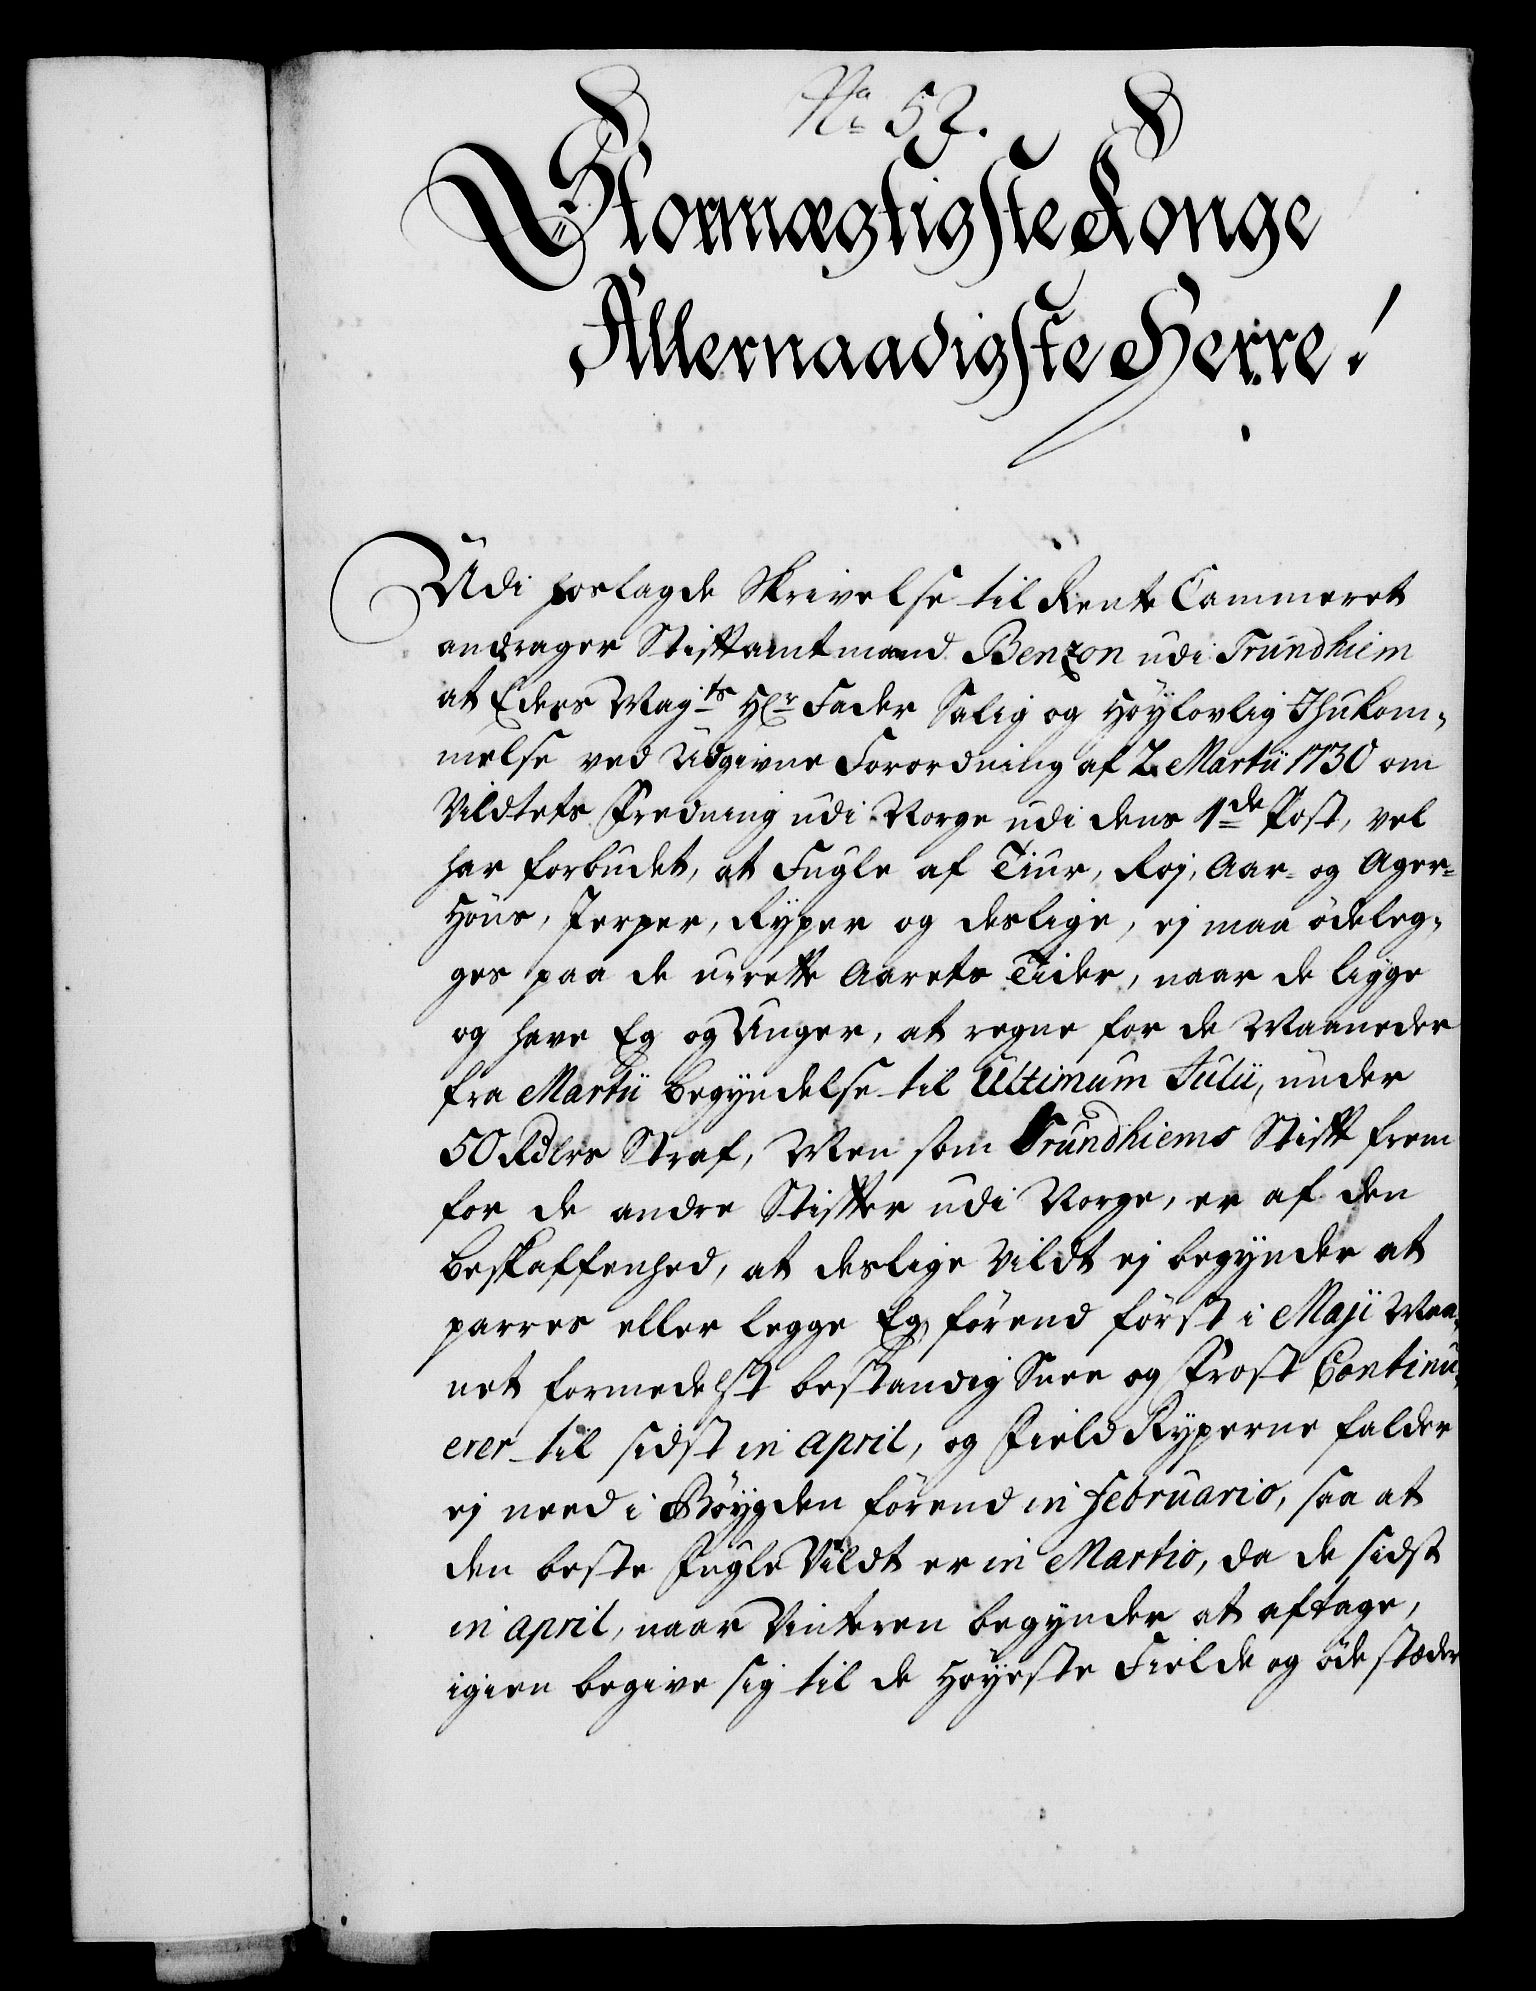 No 52.
Stormægtigste Konge
Allernaadigste Herre!
Udi hoslagde Skrivelse til Rente Cammeret
andrager Stiftamtmand Benzon udi Trundhiem
at Eders Mayts Hr Fader Salig og Höylovlig Ihukom-
melse ved Udgivne Forordning af 2. Martii 1730 om
Vildtets Fredning udi Norge udi dens 1de Post, vel
har forbudet, at Fugle af Tiur, Roj, Aar- og Ager-
Höns, Jerper, Ryper og deslige, ej maa ödeleg-
ges paa de urette Aarets Tider, naar de ligge
og have Eg og Unger, at regne for de Maaneder
fra Martii begyndelse til Ultimum Julii, under
50 Rdlrs Straf, Men som Trundhiems Stift frem
for de andre Stifter udi Norge, er af den
beskaffenhed, at deslige Vildt ej begynder at
parres eller legge Eg, förend först i Maji Maa-
net formedelst bestandig Snee og Frost Continu-
erer til sidst in April, og Field Ryperne falder
ej need i Böygden förend in Februario, saa at
den beste Fugle Vildt er in Martio, da de sidst
in April, naar Vinteren begynder at aftage,
igien begive sig til de Höyeste Fielde og öde stæder